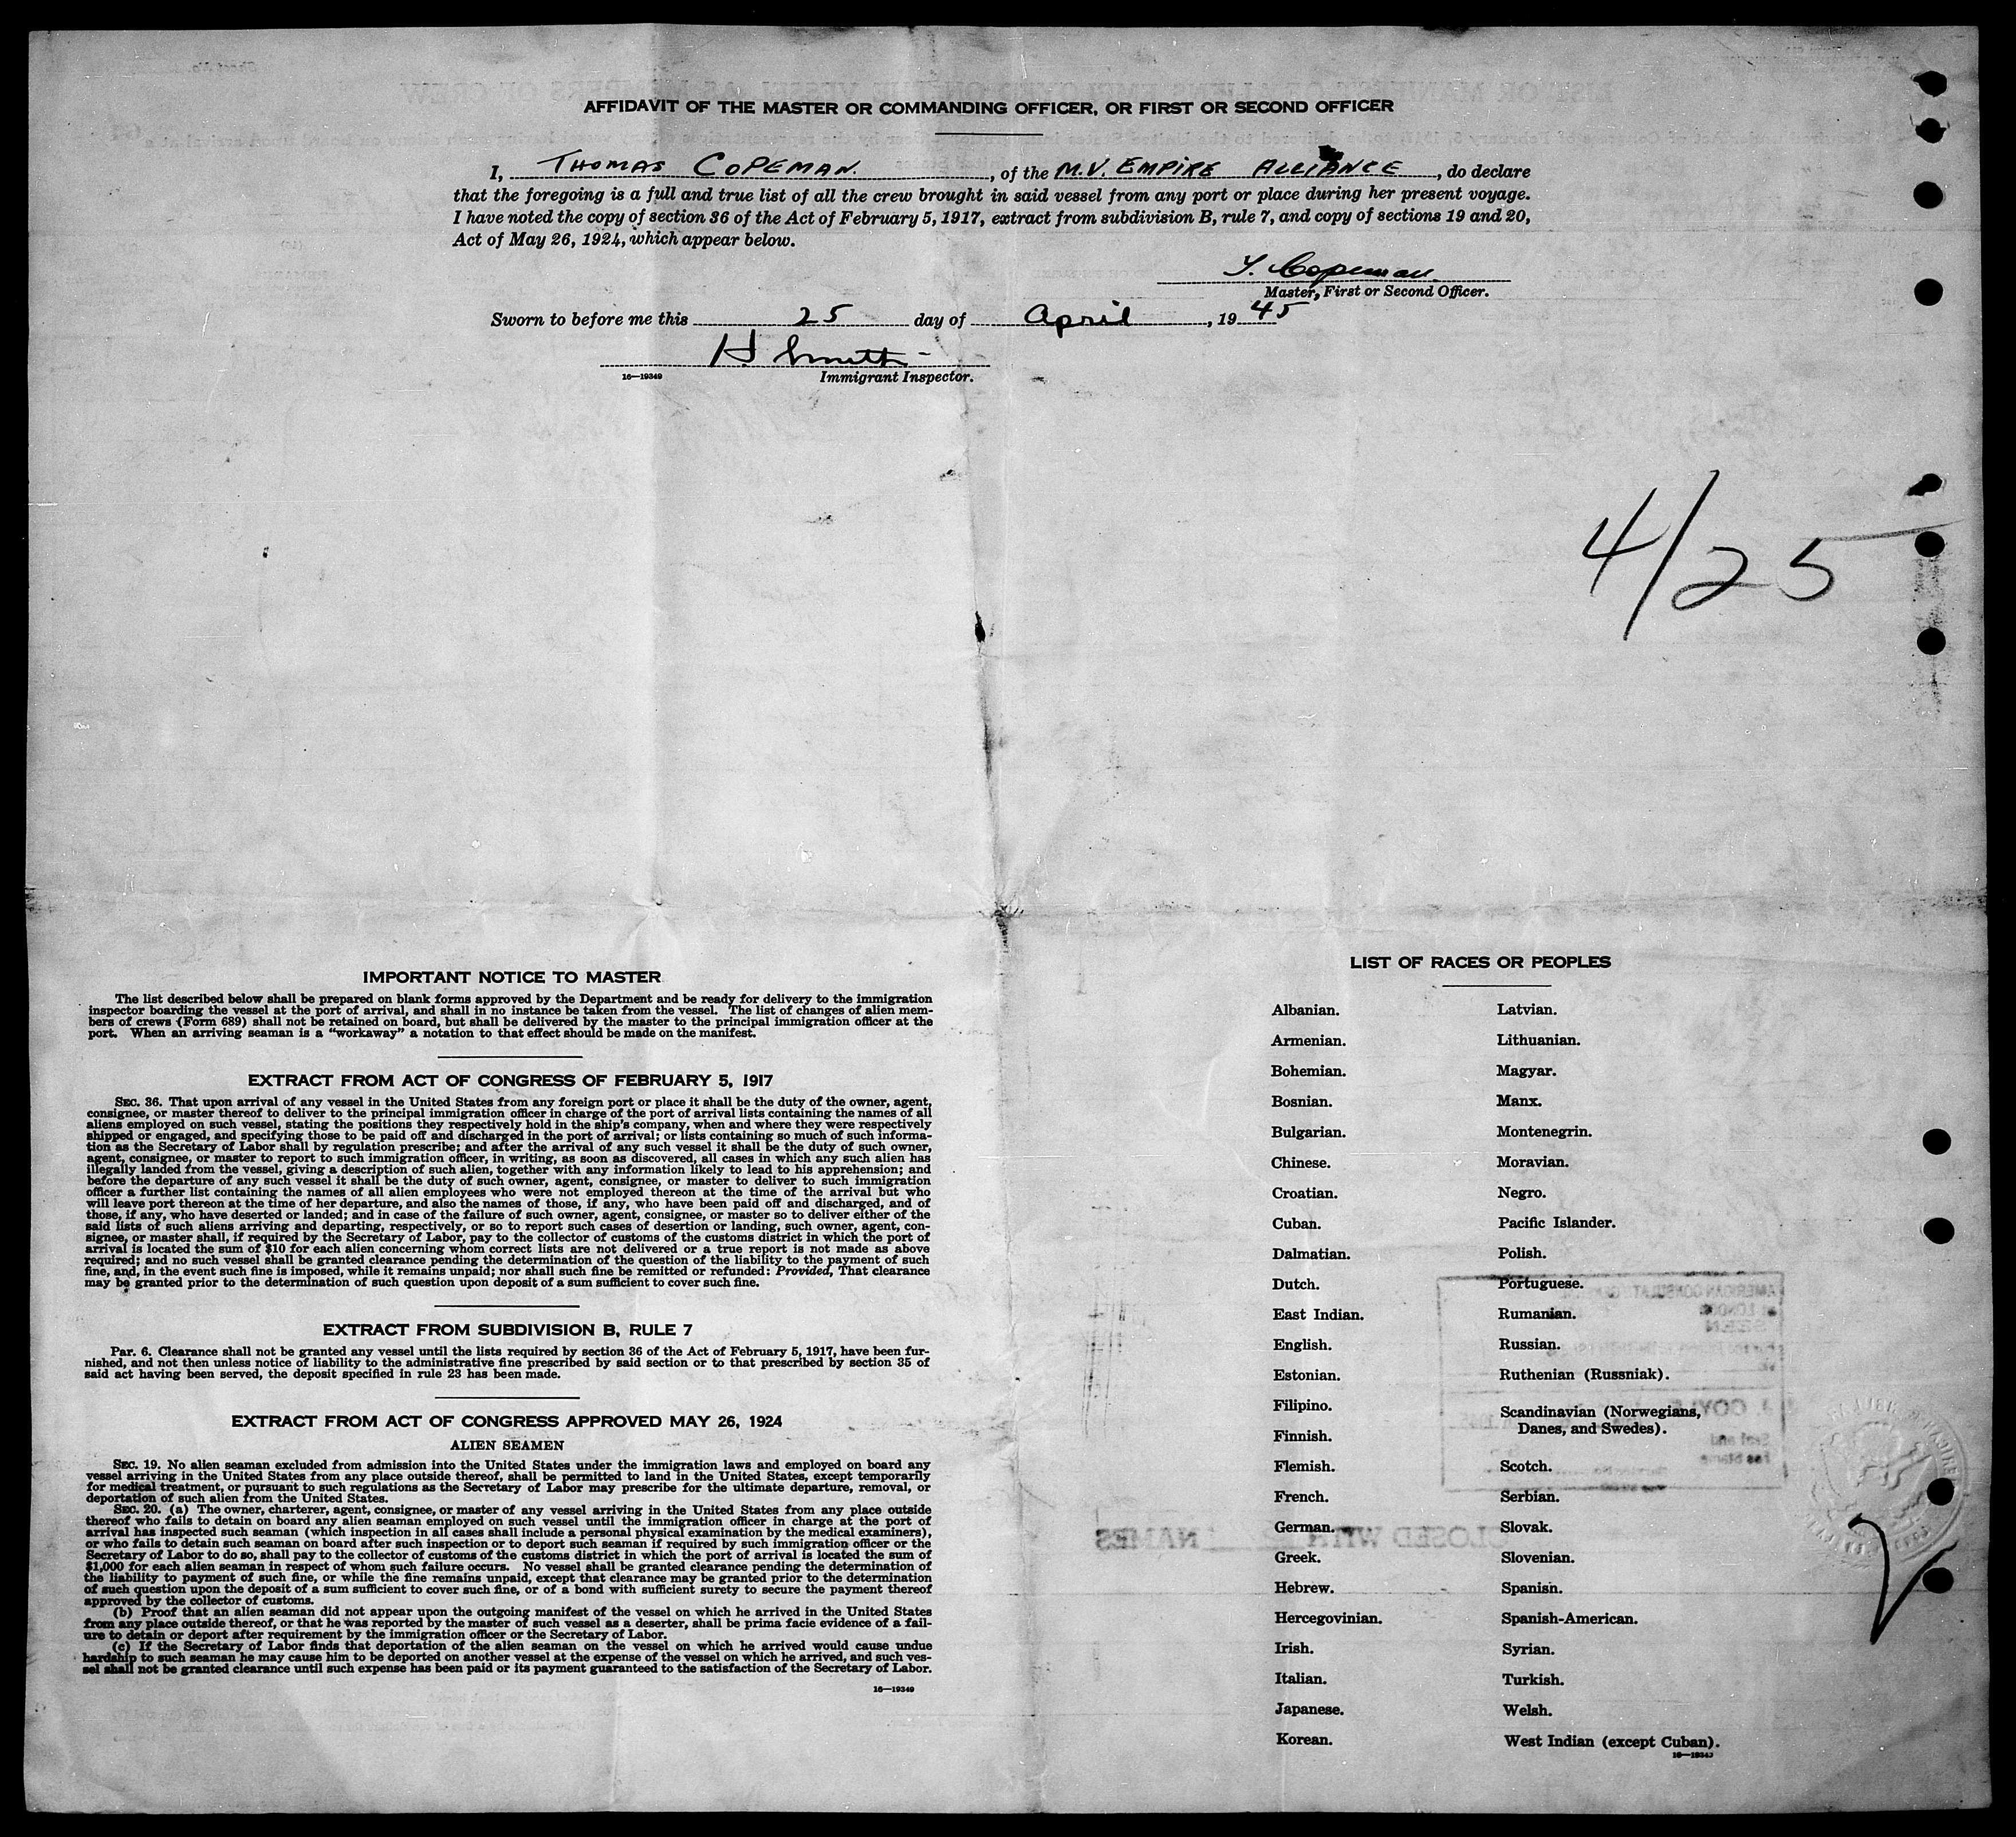 AFFIDAVIT OF THE MASTER OR COMMANDING OFFICER, OR FIRST OR SECOND OFFICER
I, THOMAS COPEMAN., of the M.V. EMPIRE ALLIANCE, do declare
that the foregoing is a full and true list of all the crew brought in said vessel from any port or place during her present voyage.
I have noted the copy of section 36 of the Act of February 5, 1917, extract from subdivision B, rule 7, and copy of sections 19 and 20,
Act of May 26, 1924, which appear below.
T. Copeman.
Master, First or Second Officer.
Sworn to before me this 25 day of April, 1945
H Smith
16—19349 Immigrant Inspector.
4/25
IMPORTANT NOTICE TO MASTER
The list described below shall be prepared on blank forms approved by the Department and be ready for delivery to the immigration
inspector boarding the vessel at the port of arrival, and shall in no instance be taken from the vessel. The list of changes of alien mem-
bers of crews (Form 689) shall not be retained on board, but shall be delivered by the master to the principal immigration officer at the
port. When an arriving seaman is a "workaway" a notation to that effect should be made on the manifest.
EXTRACT FROM ACT OF CONGRESS OF FEBRUARY 5, 1917
SEC. 36. That upon arrival of any vessel in the United States from any foreign port or place it shall be the duty of the owner, agent,
consignee, or master thereof to deliver to the principal immigration officer in charge of the port of arrival lists containing the names of all
aliens employed on such vessel, stating the positions they respectively hold in the ship's company, when and where they were respectively
shipped or engaged, and specifying those to be paid off and discharged in the port of arrival; or lists containing so much of such informa-
tion as the Secretary of Labor shall by regulation prescribe; and after the arrival of any such vessel it shall be the duty of such owner,
agent, consignee, or master to report to such immigration officer, in writing, as soon as discovered, all cases in which any such alien has
illegally landed from the vessel, giving a description of such alien, together with any information likely to lead to his apprehension; and
before the departure of any such vessel it shall be the duty of such owner, agent, consignee, or master to deliver to such immigration
officer a further list containing the names of all alien employees who were not employed thereon at the time of the arrival but who
will leave port thereon at the time of her departure, and also the names of those, if any, who have been paid off and discharged, and of
those, if any, who have deserted or landed; and in case of the failure of such owner, agent, consignee, or master so to deliver either of the
said lists of such aliens arriving and departing, respectively, or so to report such cases of desertion or landing, such owner, agent, con-
signee, or master shall, if required by the Secretary of Labor, pay to the collector of customs of the customs district in which the port of
arrival is located the sum of $10 for each alien concerning whom correct lists are not delivered or a true report is not made as above
required; and no such vessel shall be granted clearance pending the determination of the question of the liability to the payment of such
fine, and, in the event such fine is imposed, while it remains unpaid; nor shall such fine be remitted or refunded: Provided, That clearance
may be granted prior to the determination of such question upon deposit of a sum sufficient to cover such fine.
EXTRACT FROM SUBDIVISION B, RULE 7
Par. 6. Clearance shall not be granted any vessel until the lists required by section 36 of the Act of February 5, 1917, have been fur-
nished, and not then unless notice of liability to the administrative fine prescribed by said section or to that prescribed by section 35 of
said act having been served, the deposit specified in rule 23 has been made.
EXTRACT FROM ACT OF CONGRESS APPROVED MAY 26, 1924
ALIEN SEAMEN
SEC. 19. No alien seaman excluded from admission into the United States under the immigration laws and employed on board any
vessel arriving in the United States from any place outside thereof, shall be permitted to land in the United States, except temporarily
for medical treatment, or pursuant to such regulations as the Secretary of Labor may prescribe for the ultimate departure, removal, or
deportation of such alien from the United States.
SEC. 20. (a) The owner, charterer, agent, consignee, or master of any vessel arriving in the United States from any place outside
thereof who fails to detain on board any alien seaman employed on such vessel until the immigration officer in charge at the port of
arrival has inspected such seaman (which inspection in all cases shall include a personal physical examination by the medical examiners),
or who fails to detain such seaman on board after such inspection or to deport such seaman if required by such immigration officer or the
Secretary of Labor to do so, shall pay to the collector of customs of the customs district in which the port of arrival is located the sum of
$1,000 for each alien seaman in respect of whom such failure occurs. No vessel shall be granted clearance pending the determination of
the liability to payment of such fine, or while the fine remains unpaid, except that clearance may be granted prior to the determination
of such question upon the deposit of a sum sufficient to cover such fine, or of a bond with sufficient surety to secure the payment thereof
approved by the collector of customs.
(b) Proof that an alien seaman did not appear upon the outgoing manifest of the vessel on which he arrived in the United States
from any place outside thereof, or that he was reported by the master of such vessel as a deserter, shall be prima facie evidence of a fail-
ure to detain or deport after requirement by the immigration officer or the Secretary of Labor.
(c) If the Secretary of Labor finds that deportation of the alien seaman on the vessel on which he arrived would cause undue
hardship to such seaman he may cause him to be deported on another vessel at the expense of the vessel on which he arrived, and such ves-
sel shall not be granted clearance until such expense has been paid or its payment guaranteed to the satisfaction of the Secretary of Labor.
16—19349
LIST OF RACES OR PEOPLES
Albanian.
Armenian.
Bohemian.
Bosnian.
Bulgarian.
Chinese.
Croatian.
Cuban.
Dalmatian.
Dutch.
East Indian.
English.
Estonian.
Filipino.
Finnish.
Flemish.
French.
German.
Greek.
Hebrew.
Hercegovinian.
Irish.
Italian.
Japanese.
Korean.
Latvian.
Lithuanian.
Magyar.
Manx.
Montenegrin.
Moravian.
Negro.
Pacific Islander.
Polish.
Portuguese.
Rumanian.
Russian.
Ruthenian (Russniak).
Scandinavian (Norwegians,
Danes, and Swedes).
Scotch.
Serbian.
Slovak.
Slovenian.
Spanish.
Spanish-American.
Syrian.
Turkish.
Welsh.
West Indian (except Cuban).
16—19349